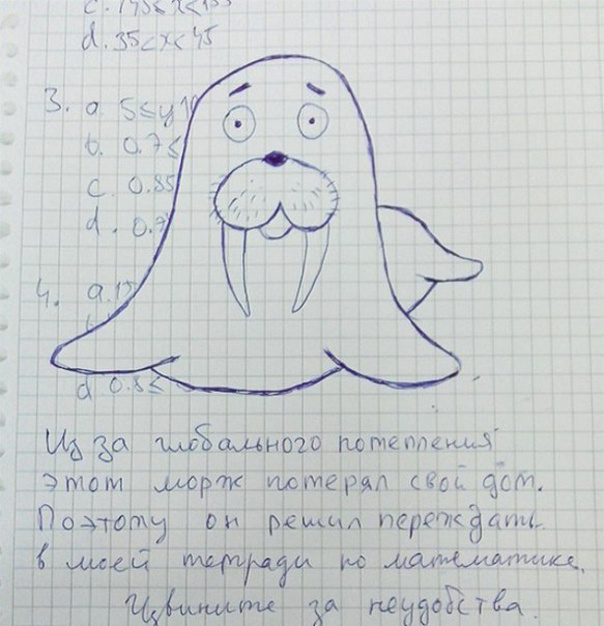 d. 35<x<45
3. a. 5≤y
b. 0.7≤
c. 0.85
d. 0.7
4. a.
d 0.8≤
Из за глобального потепления
этот морж потерял свой дом.
Поэтому он решил переждать
в моей тетради по математике.
Извините за неудобства.